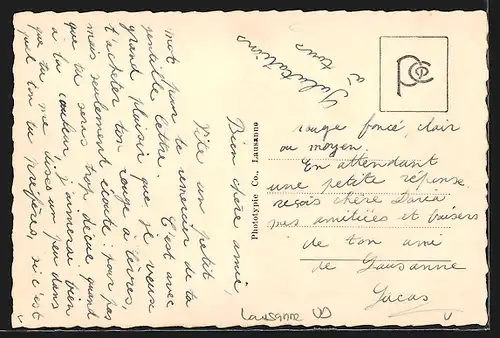 Bien chère amie,
Vite un petit
mot pour te remercier de ta
gentille lettre. C'est avec
grand plaisir que je veux
t'acheter ton rouge à lèvres,
mais seulement écoute: pour pas
que tu sois trop déçue quand
à ta couleur, j'aimerai bien
que tu me dises un peu dans
quel ton tu préfères, si c'est
rouge foncé, clair
ou moyen.
En attendant
une petite réponse
reçois chère Daria
mes amitiées et baisers
de ton ami
de Lausanne
Lucas
Salutations
à tous
Phototypie Co., Lausanne
PCo
Lausanne VD